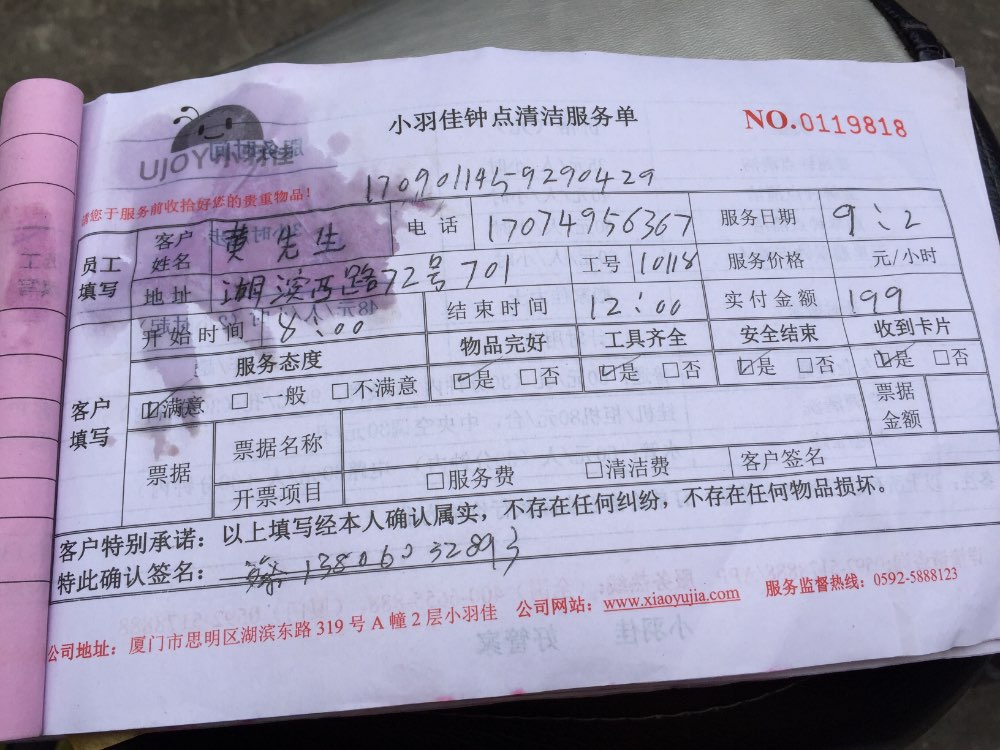 UJOY小羽佳
小羽佳钟点清洁服务单
NO.0119818
请您于服务前收拾好您的贵重物品！
1709011459290429
员工填写 客户姓名 黄先生 电话 17074956367 服务日期 9:2
地址 湖滨西路72号701 工号 10118 服务价格 元/小时
开始时间 8:00 结束时间 12:00 实付金额 199
客户填写 服务态度 物品完好 工具齐全 安全结束 收到卡片
☑满意 □一般 □不满意 ☑是 □否 ☑是 □否 ☑是 □否 ☑是 □否
票据 票据名称 票据金额
开票项目 □服务费 □清洁费 客户签名
客户特别承诺：以上填写经本人确认属实，不存在任何纠纷，不存在任何物品损坏。
特此确认签名： 1380603289
公司地址：厦门市思明区湖滨东路319号A幢2层小羽佳 公司网站：www.xiaoyujia.com 服务监督热线：0592-5888123